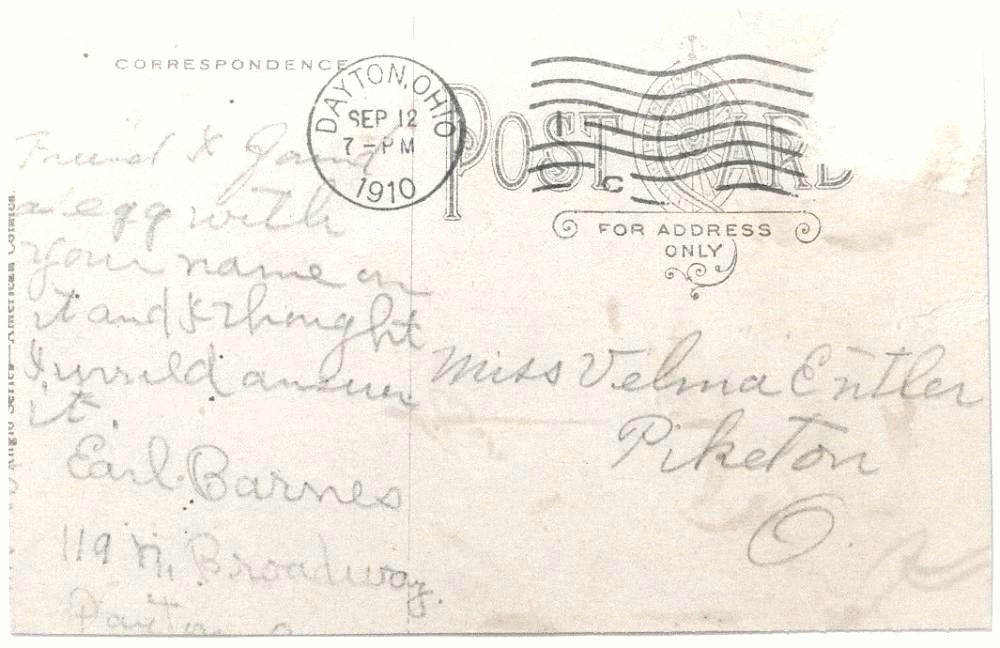 CORRESPONDENCE
DAYTON, OHIO
SEP 12
7 - PM
1910
POST CARD
FOR ADDRESS
ONLY
Friend I Found
a egg with
your name on
it and I thought
I would answer
it.
Earl Barnes
119 N. Broadway.
Dayton O
Miss Velma Entler
Piketon
O.
Anglo Series—American Comics